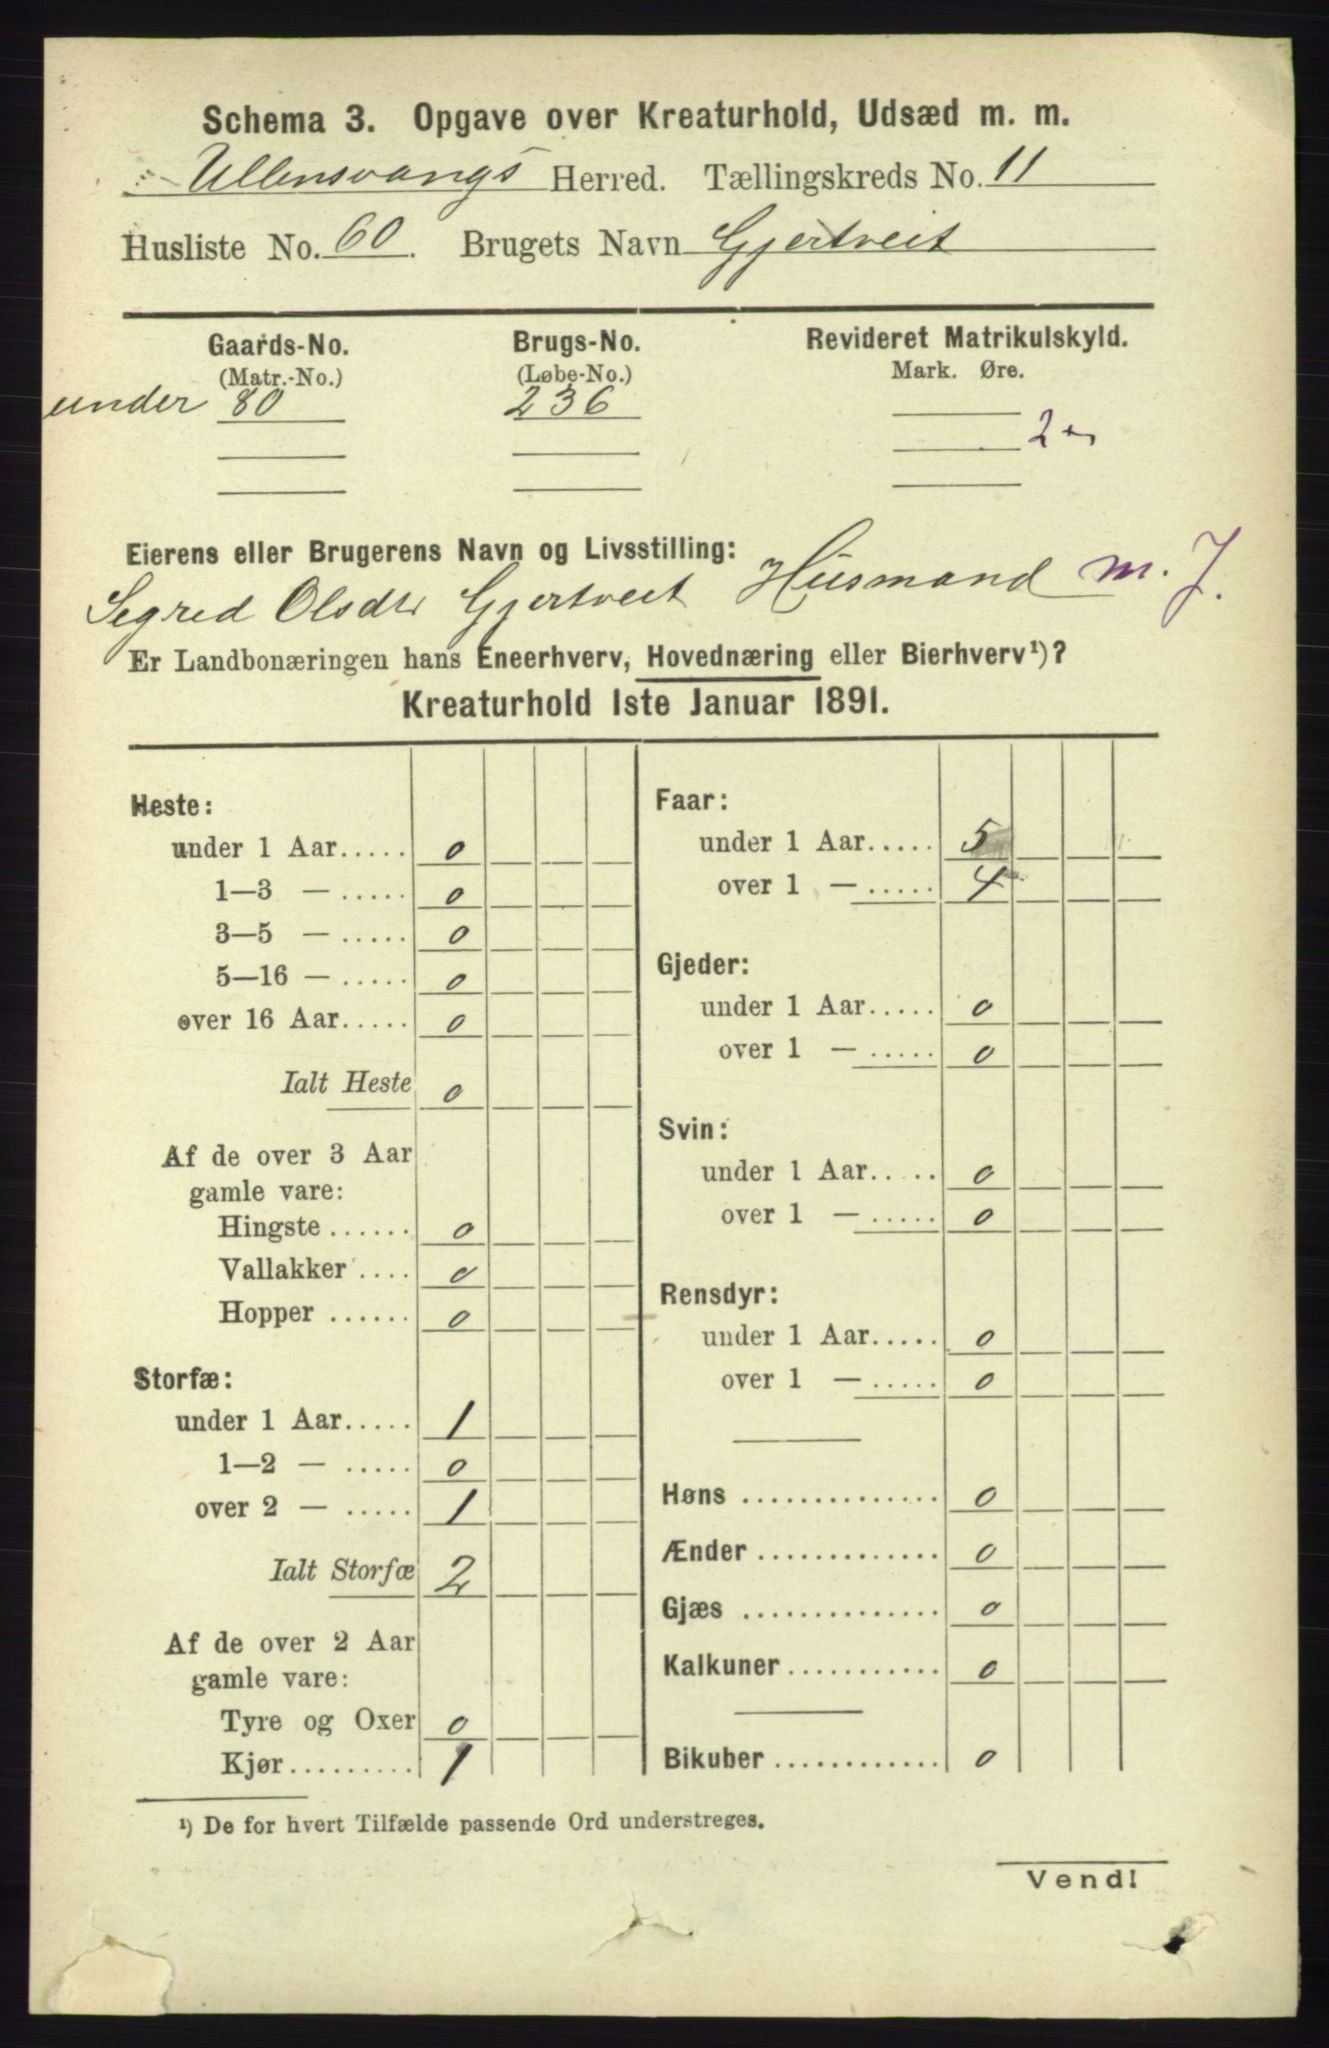 Schema 3. Opgave over Kreaturhold, Udsæd m. m.
Ullensvangs Herred. Tællingskreds No. 11
Husliste No. 60. Brugets Navn Gjertveit
Gaards-No. Brugs-No. Revideret Matrikulskyld.
(Matr.-No.) (Løbe-No.) Mark. Øre.
under 80 236
2
Eierens eller Brugerens Navn og Livsstilling:
Segred Olsdtr Gjertveit Husmand m. J.
Er Landbonæringen hans Eneerhverv, Hovednæring eller Bierhverv¹)?
Kreaturhold 1ste Januar 1891.
Heste:
under 1 Aar..... 0
1—3 — ..... 0
3—5 — ..... 0
5—16 — ..... 0
over 16 Aar..... 0
Ialt Heste 0
Af de over 3 Aar
gamle vare:
Hingste ...... 0
Vallakker .... 0
Hopper ...... 0
Storfæ:
under 1 Aar..... 1
1—2 — ..... 0
over 2 — ..... 1
Ialt Storfæ 2
Af de over 2 Aar
gamle vare:
Tyre og Oxer 0
Kjør......... 1
Faar:
under 1 Aar..... 5
over 1 — ..... 4
Gjeder:
under 1 Aar..... 0
over 1 — ..... 0
Svin:
under 1 Aar..... 0
over 1 — ..... 0
Rensdyr:
under 1 Aar..... 0
over 1 — ..... 0
Høns .............. 0
Ænder ............. 0
Gjæs .............. 0
Kalkuner ........... 0
Bikuber ............ 0
¹) De for hvert Tilfælde passende Ord understreges.
Vend!